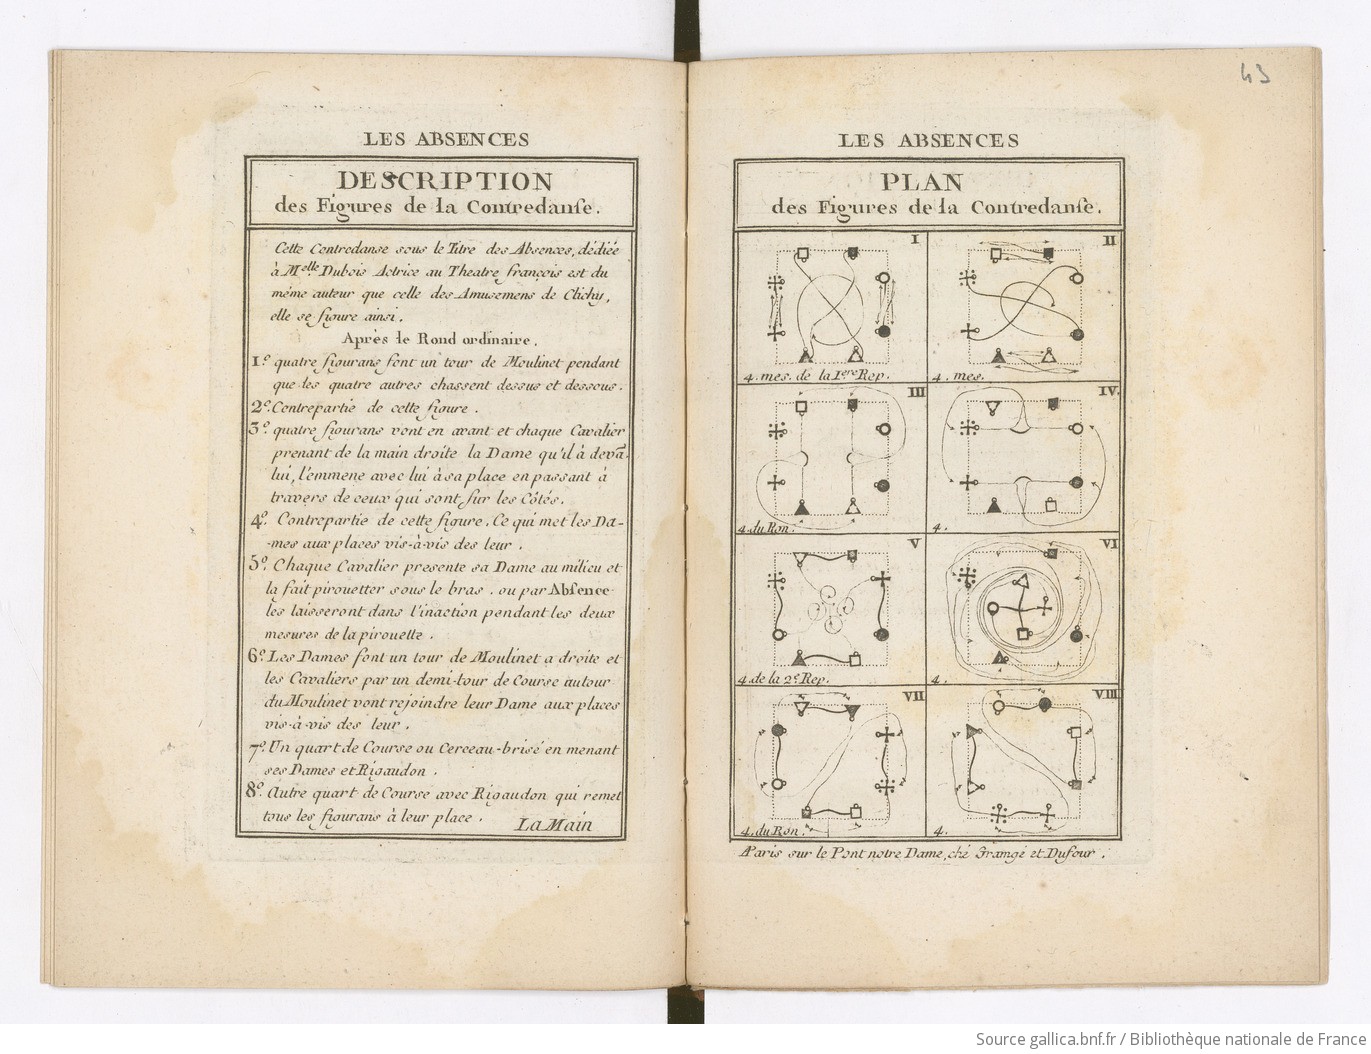 LES ABSENCES
DESCRIPTION
des Figures de la Contredanſe.
Cette Contredanse sous le Titre des Absences, dédiée
à Melle Dubois Actrice au Theatre françois est du
même auteur que celle des Amusemens de Clichy,
elle se figure ainsi.
Après le Rond ordinaire.
1º. quatre figurans font un tour de Moulinet pendant
que les quatre autres chassent dessus et dessous.
2º. Contrepartie de cette figure.
3º. quatre figurans vont en avant et chaque Cavalier
prenant de la main droite la Dame qu'il à devã.
lui, l'emmene avec lui à sa place en passant à
travers de ceux qui sont sur les Côtés.
4º. Contrepartie de cette figure. Ce qui met les Da-
-mes aux places vis-à-vis des leur.
5º. Chaque Cavalier presente sa Dame au milieu et
la fait pirouetter sous le bras. ou par Abſence
les laisseront dans l'inaction pendant les deux
mesures de la pirouette.
6º. Les Dames font un tour de Moulinet a droite et
les Cavaliers par un demi-tour de Course autour
du Moulinet vont rejoindre leur Dame aux places
vis-à-vis des leur.
7º. Un quart de Course ou Cerceau-brisé en menant
ses Dames et Rigaudon.
8º. Autre quart de Course avec Rigaudon qui remet
tous les figurans à leur place.
La Main
43
LES ABSENCES
PLAN
des Figures de la Contredanſe.
I
4. mes. de la 1ere Rep.
II
4. mes.
III
4. du Ron.
IV.
4.
V
4. de la 2e Rep.
VI
4.
VII
4. du Ron.
VIII
4.
A Paris sur le Pont notre Dame, ché Grangé et Dufour.
Source gallica.bnf.fr / Bibliothèque nationale de France